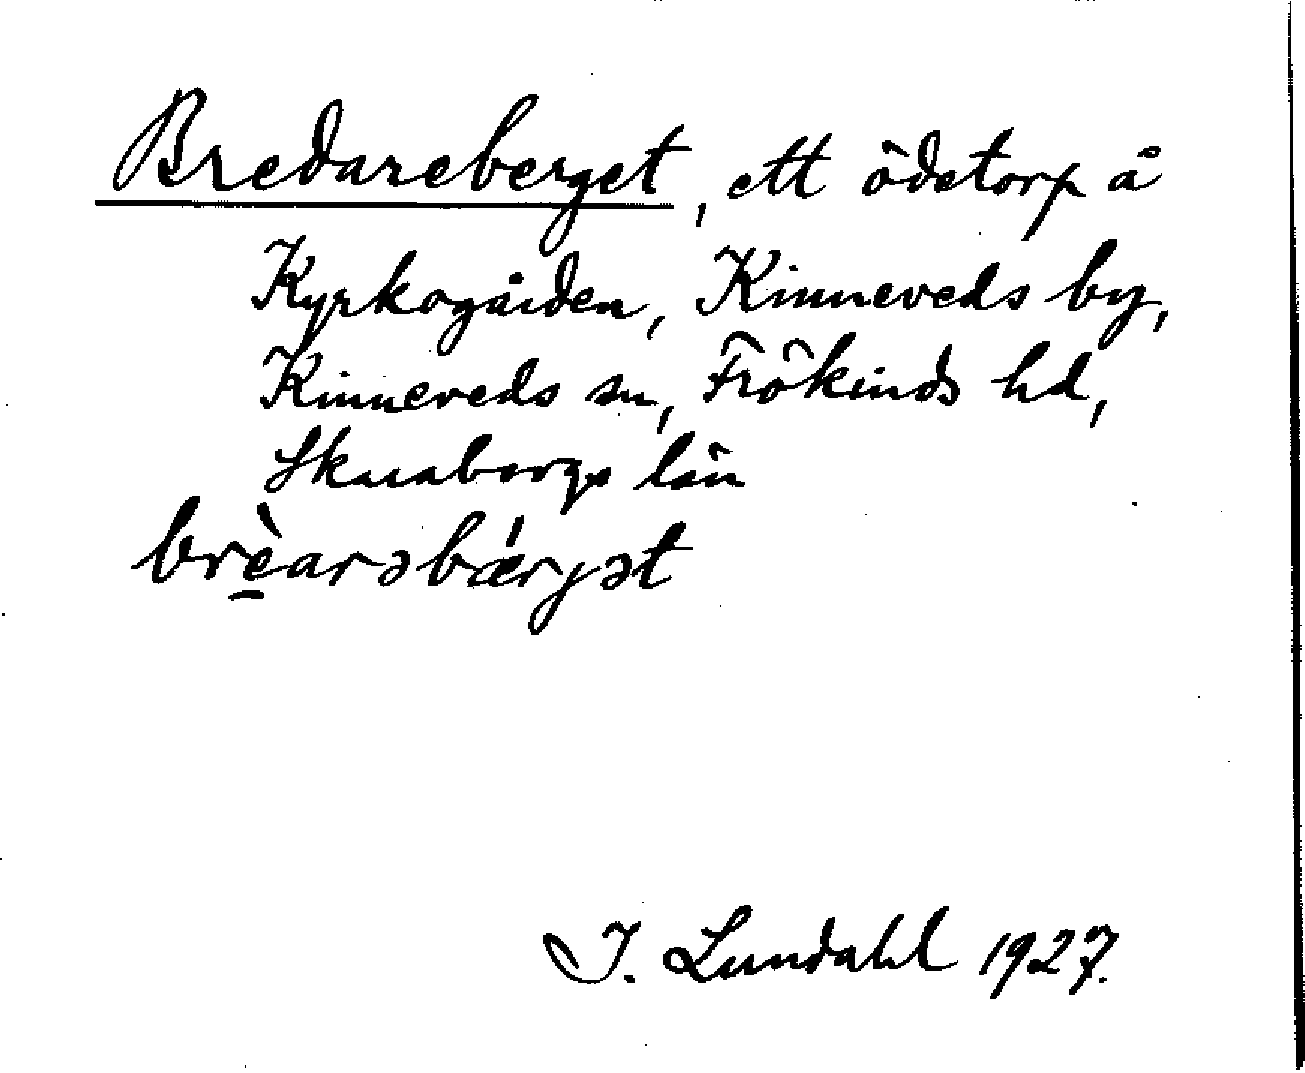 Bredareberget, ett ödetorp å
Kyrkogården, Kinneveds by,
Kinneveds sn, Frökinds hd,
Skaraborgs län
brè̱arəbǽrjət
I. Lundahl 1927.